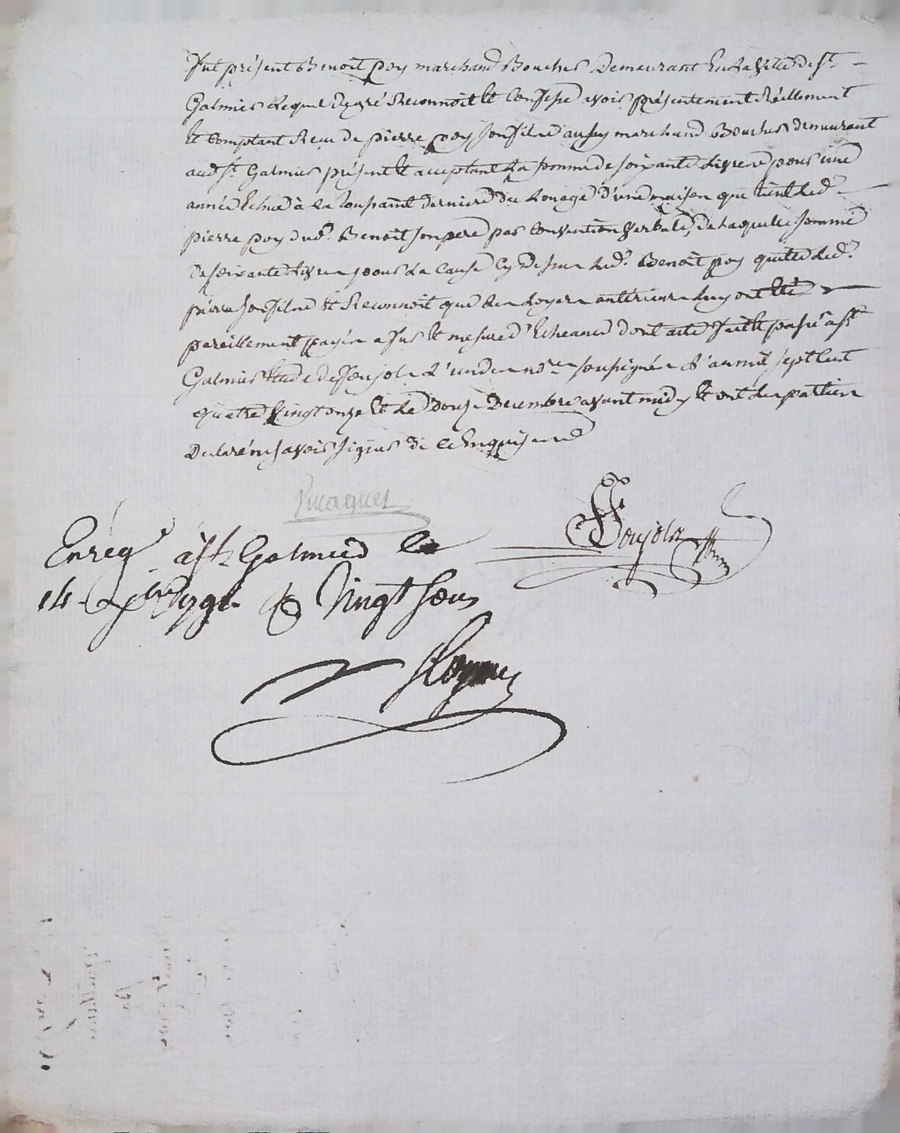 fut présent Benoit poy marchand Boucher Demeurant En La Ville de St.
Galmier Lequel de gré Reconnoit Et Confesse avoir présentement Réellement
Et Comptant Reçu de pierre poy son fils aussy marchand Boucher demeurant
aud. St. Galmier présent Et acceptant La somme de soixante Livres pour une
année Echue à la Toussaint dernière du Louage d'une maison que tient Led.
pierre poy dud. Benoit son père par Convention Verbale, de Laquelle somme
De soixante Livres pour La Cause Cy Dessus Led. Benoit poy quitte Led.
pierre son fils Et Reconnoit que Les Loyers antérieurs Luy ont Eté
pareillement payés a fur Et mesure d'Echeance dont acte fait Et passé à St.
Galmier Etude de Fonjols L'un des nres. soussignés L'an mil sept Cent
quatre Vingt onze Et Le Douze Decembre avant midy Et ont Les parties
Declaré ne savoir signer de ce Enquises
Enrég. à St. Galmier le
14 Xbre 1791 Vingt sous